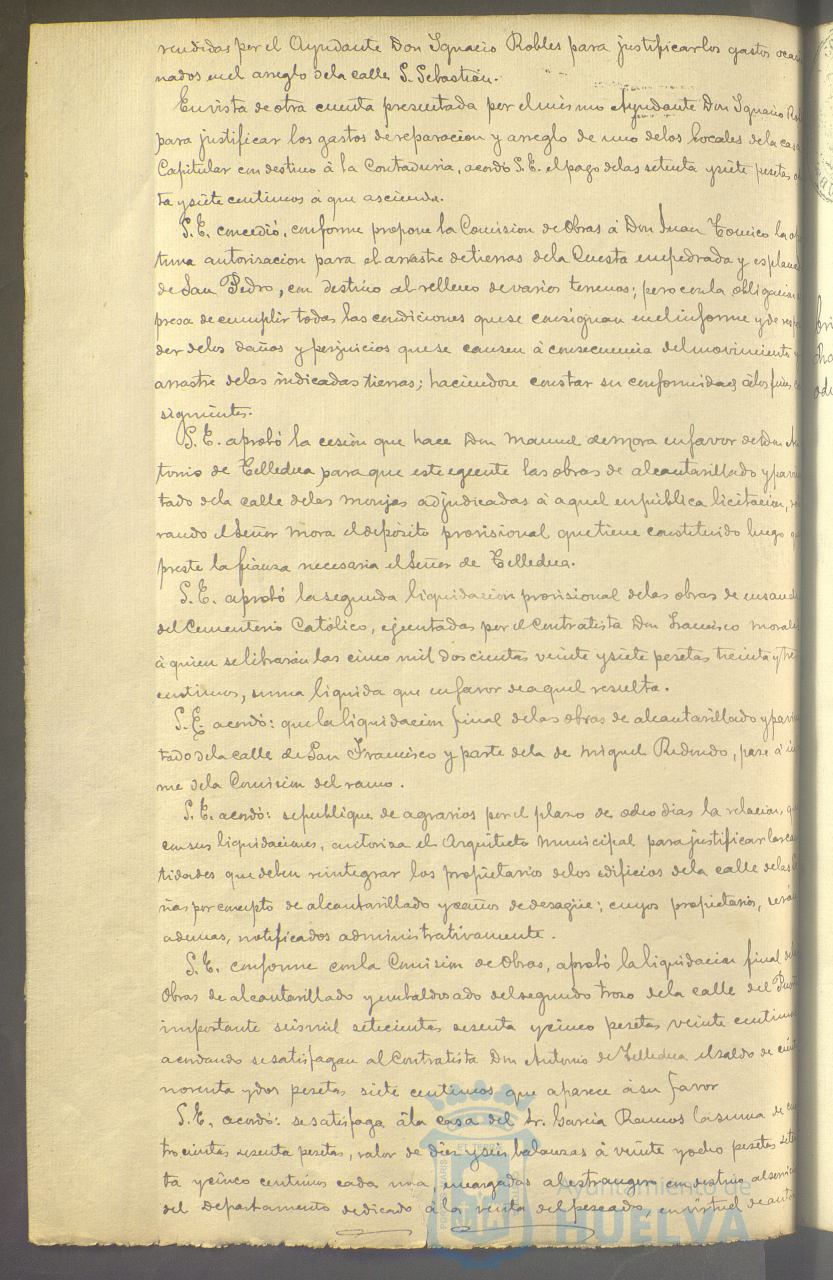 rendidas por el Ayudante Don Ignacio Robles para justificar los gastos ocasio
nados en el arreglo de la calle S. Sebastián.
En vista de otra cuenta presentada por el mismo Ayudante Don Ignacio Rob
para justificar los gastos de reparacion y arreglo de uno de los locales de la casa
Capitular con destino á la Contaduria, acordó S.E. el pago de las setenta y siete pesetas
ta y siete centimos á que asciende.
S.E. concedió, conforme propone la Comision de Obras á Don Juan Tomico la o
tuna autorizacion para el arrastre de tierras de la Cuesta empedrada y esplana
de San Pedro, con destino al relleno de varios terrenos; pero con la obligacion
presa de cumplir todas las condiciones que se consignan en el informe y de res
der de los daños y perjuicios que se causen á consecuencia del movimiento y
arrastre de las indicadas tierras; haciendose constar su conformidad á los fines con
siguientes.
S.E. aprobó la cesión que hace Don Manuel de Mora en favor de Don An
tonio de Telledua para que este egecute las obras de alcantarillado y pavi
tado de la calle de las Monjas adjudicadas á aquel en publica licitacion,
rando el Señor Mora el depósito provisional que tiene constituido luego q
preste la fianza necesaria el Señor de Telledua.
S.E. aprobó la segunda liquidacion provisional de las obras de ensanche
del Cementerio Católico, ejecutadas por el Contratista Don Francisco Morales
á quien se librarán las cinco mil doscientas veinte y siete pesetas treinta y tres
centimos, suma liquida que en favor de aquel resulta.
S.E. acordó: que la liquidacion final de las obras de alcantarillado y pavim
tado de la calle de San Francisco y parte de la de Miguel Redondo, pase á in
me de la Comision del ramo.
S.E. acordó: se publique de agrarios por el plazo de ocho dias la relacion, que
con sus liquidaciones, autoriza el Arquitecto Municipal para justificar las can
tidades que deben reintegrar los propietarios de los edificios de la calle de las
ñas por concepto de alcantarillado y caños de desagüe; cuyos propietarios, serán
ademas, notificados administrativamente.
S.E. conforme con la Comision de Obras, aprobó la liquidacion final de las
Obras de alcantarillado y embaldosado del segundo trozo de la calle del Puerto
importante seis mil setecientas sesenta y cinco pesetas veinte centimos
acordando se satisfagan al Contratista Don Antonio de Telledua el saldo de ciento
noventa y dos pesetas siete centimos que aparece á su favor
S.E. acordó: se satisfaga á la casa del Sr. Garcia Ramos la suma de cua
trocientas sesenta pesetas, valor de diez y seis balanzas á veinte y ocho pesetas seten
ta y cinco centimos cada una, encargadas al estrangero con destino al servicio
del Departamento dedicado á la venta del pescado, en virtud de auto
Ayuntamiento de
HUELVA